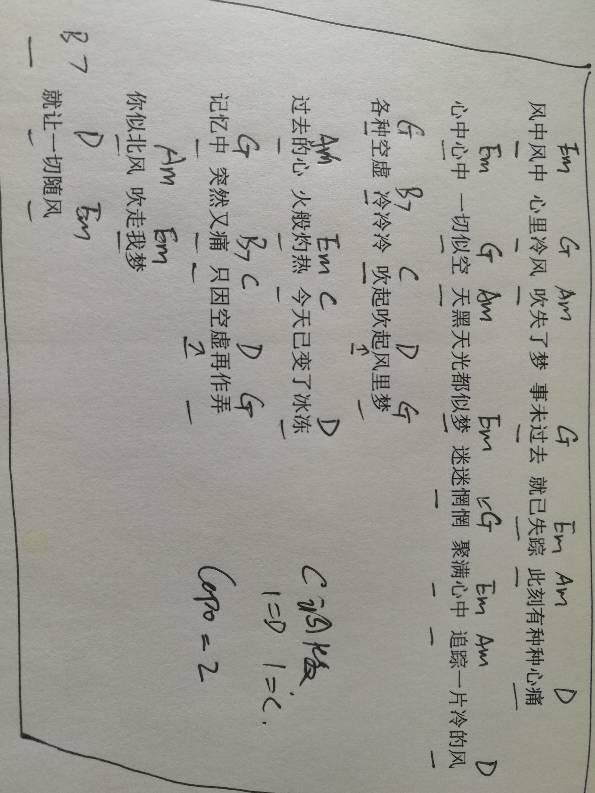 Em G Am G Em Am D
风中风中 心里冷风 吹失了梦 事未过去 就已失踪 此刻有种种心痛
Em G Am Em G Em Am D
心中心中 一切似空 天黑天光都似梦 迷迷惘惘 聚满心中 追踪一片冷的风
G B7 C D G
各种空虚 冷冷冷 吹起吹起风里梦
Am Em C D
过去的心 火般灼热 今天已变了冰冻
G B7 C D G
记忆中 突然又痛 只因空虚再作弄
Am Em
你似北风 吹走我梦
B7 D Em
就让一切随风
C调
1=D 1=C.
Capo = 2